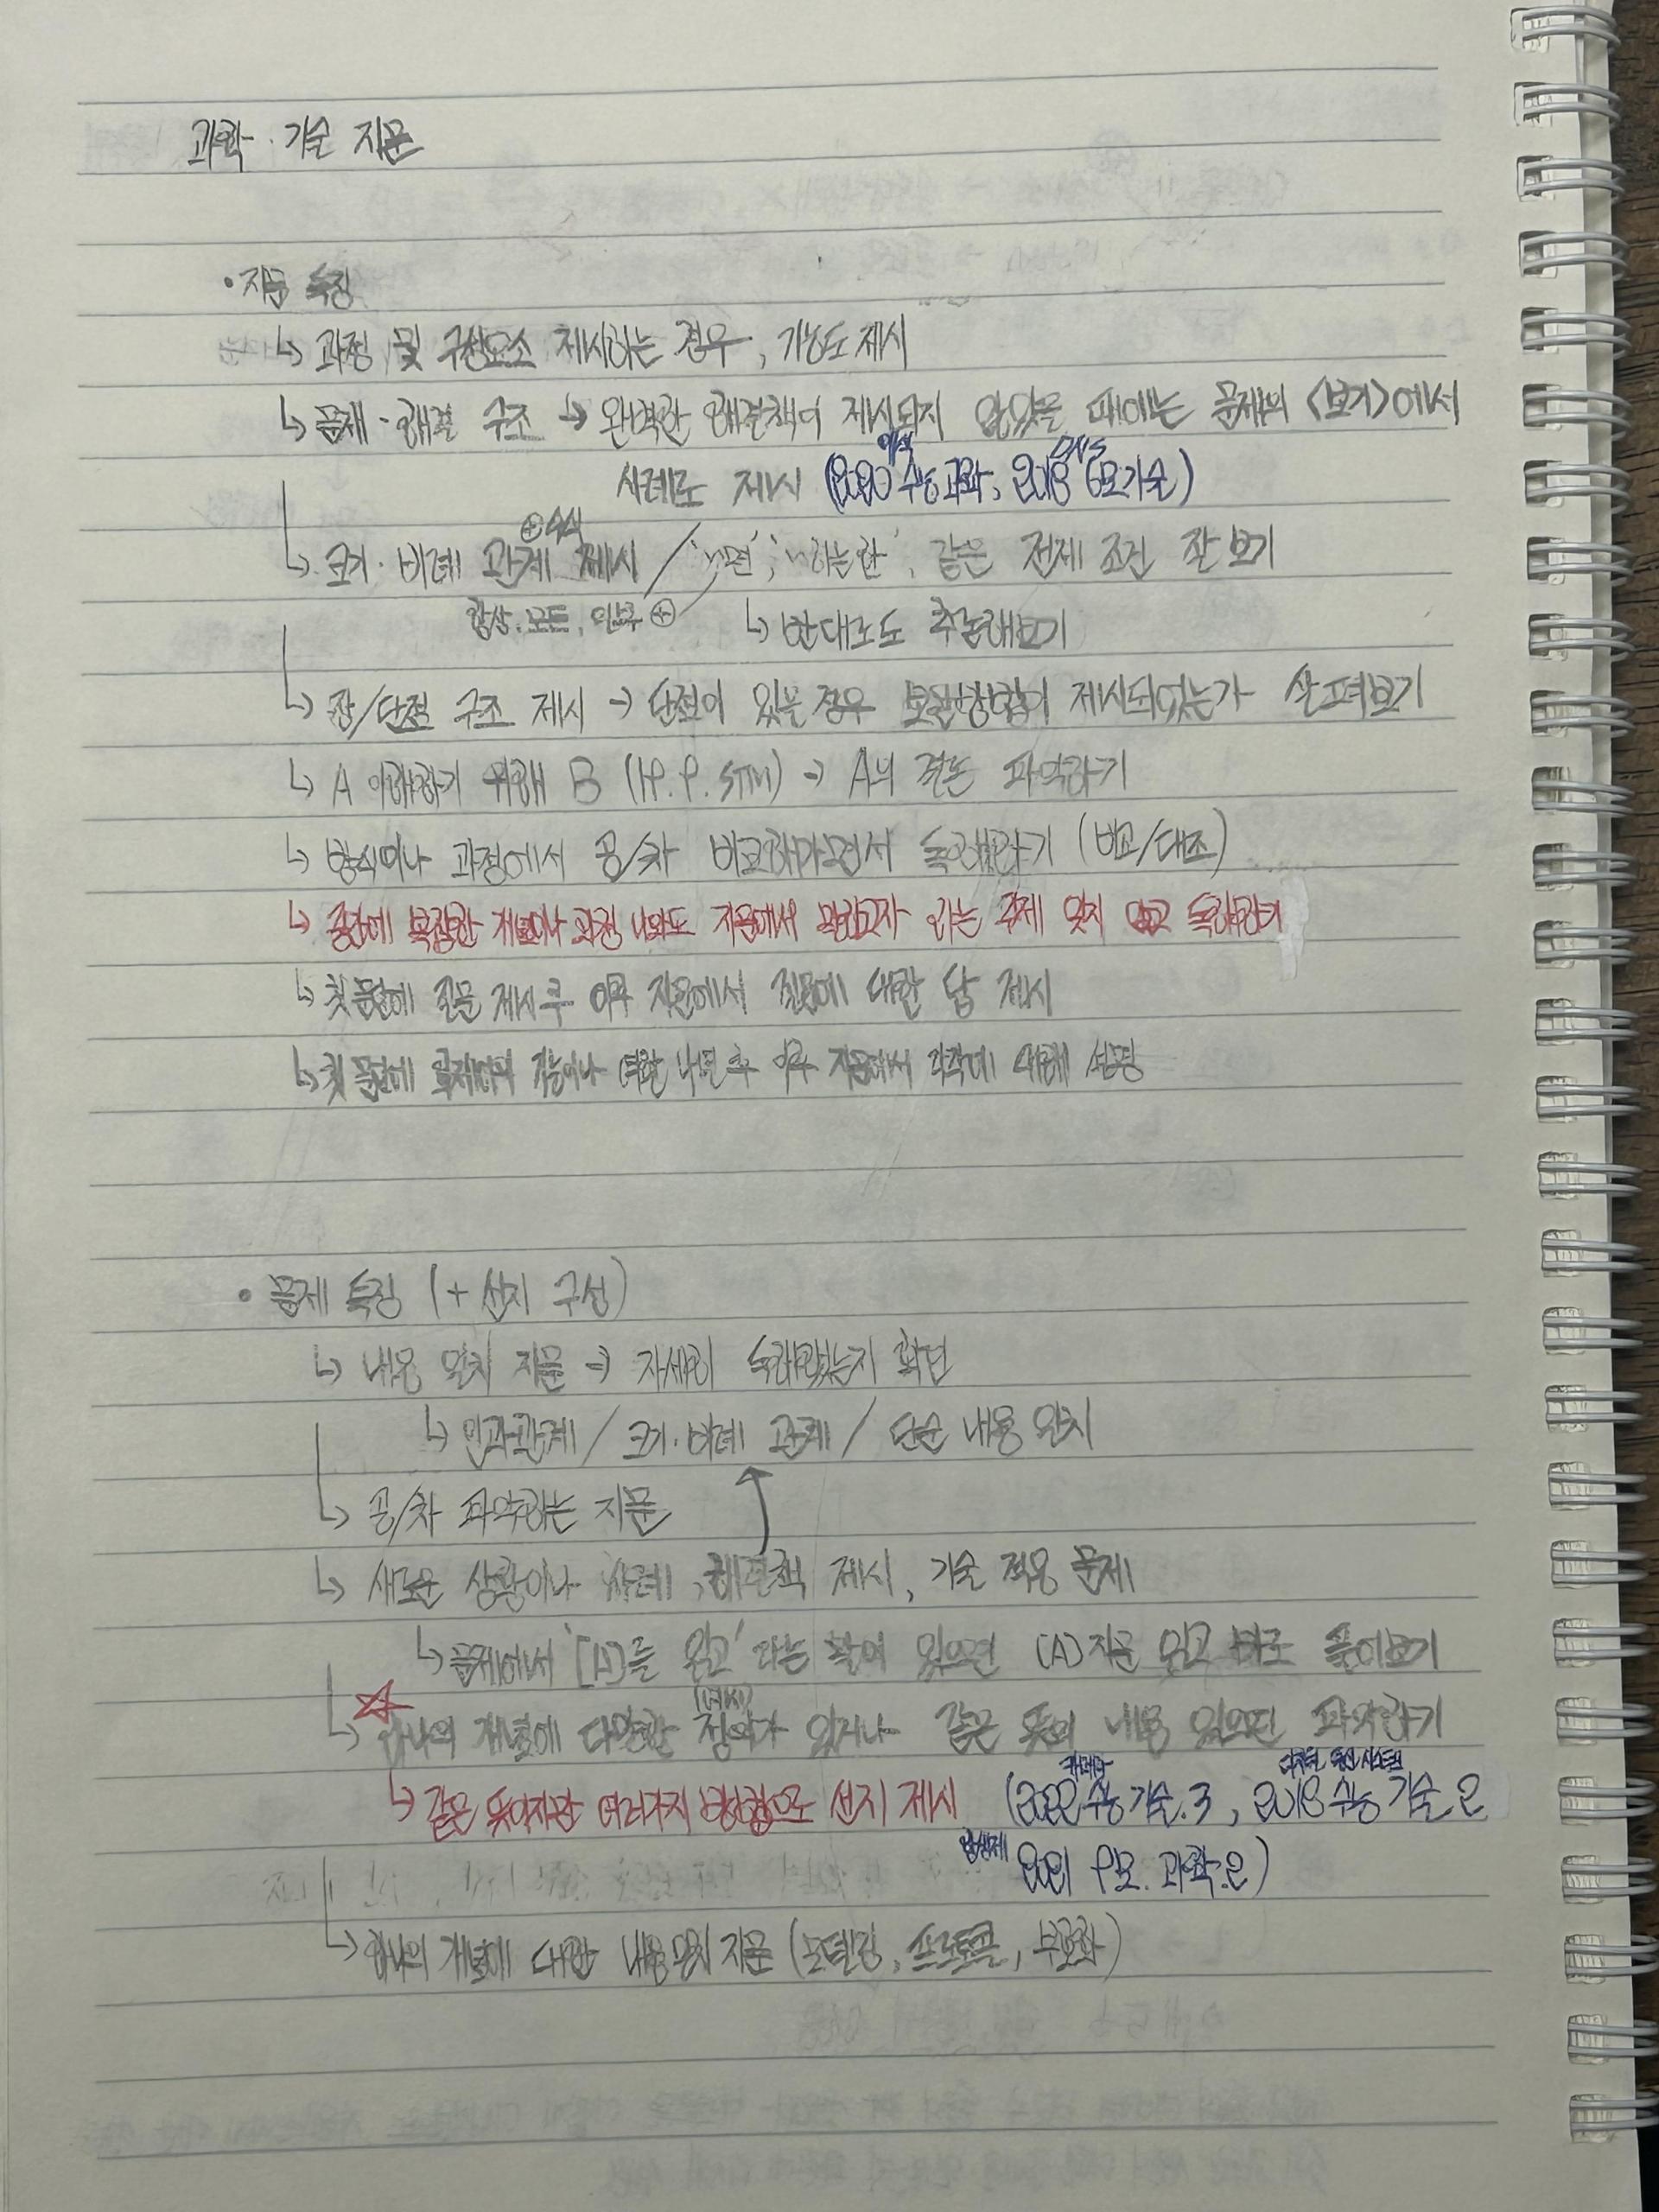 과학·기술 지문
• 지문 특징
↳ 과정 및 구성요소 제시하는 경우, 기능도 제시
↳ 문제·해결 구조 → 완벽한 해결책이 제시되지 않았을 때에는 문제의 <보기>에서
이식 DNS
사례로 제시 (2020 수능 과학, 2018 6모 기술)
⊕ 수식
↳ 크기·비례 관계 제시 / '~면', '~하는 한', 같은 전제 조건 잘 보기
항상, 모든, 일부 ⊕ ↳ 반대로도 추론해보기
↳ 장/단점 구조 제시 → 단점이 있을 경우 보완방법이 제시되었는가 살펴보기
↳ A 이해하기 위해 B → A의 결론 파악하기
↳ 방식이나 과정에서 공/차 비교해가면서 독해하기 (비교/대조)
↳ 중간에 복잡한 개념이나 과정 나와도 지문에서 말하고자 하는 주제 잊지 않고 독해하기
↳ 첫 문단에 질문 제시 후 이후 지문에서 질문에 대한 답 제시
↳ 첫 문단에 기능이나 역할 나열 후 이후 지문에서 각각에 대해 설명
• 문제 특징 (+ 선지 구성)
↳ 내용 일치 지문 → 자세히 독해했는지 확인
↳ 인과관계 / 크기·비례 관계 / 단순 내용 일치
↳ 공/차 파악하는 지문
↳ 새로운 상황이나 사례, 해결책 제시, 기술 적용 문제
↳ 문제에서 '[A]를 읽고' 라는 말이 있으면 [A] 지문 읽고 바로 풀어보기
↳ 하나의 개념에 다양한 정의가 있거나 같은 뜻의 내용 있으면 파악하기
카메라 디지털 통신 시스템
↳ 같은 뜻이지만 여러가지 방향으로 선지 제시 (2022 수능 기술.3, 2018 수능 기술.2
항생제 2021 9모. 과학.2)
↳ 하나의 개념에 대한 내용 일치 지문 (모델링, 프로토콜, 부호화)